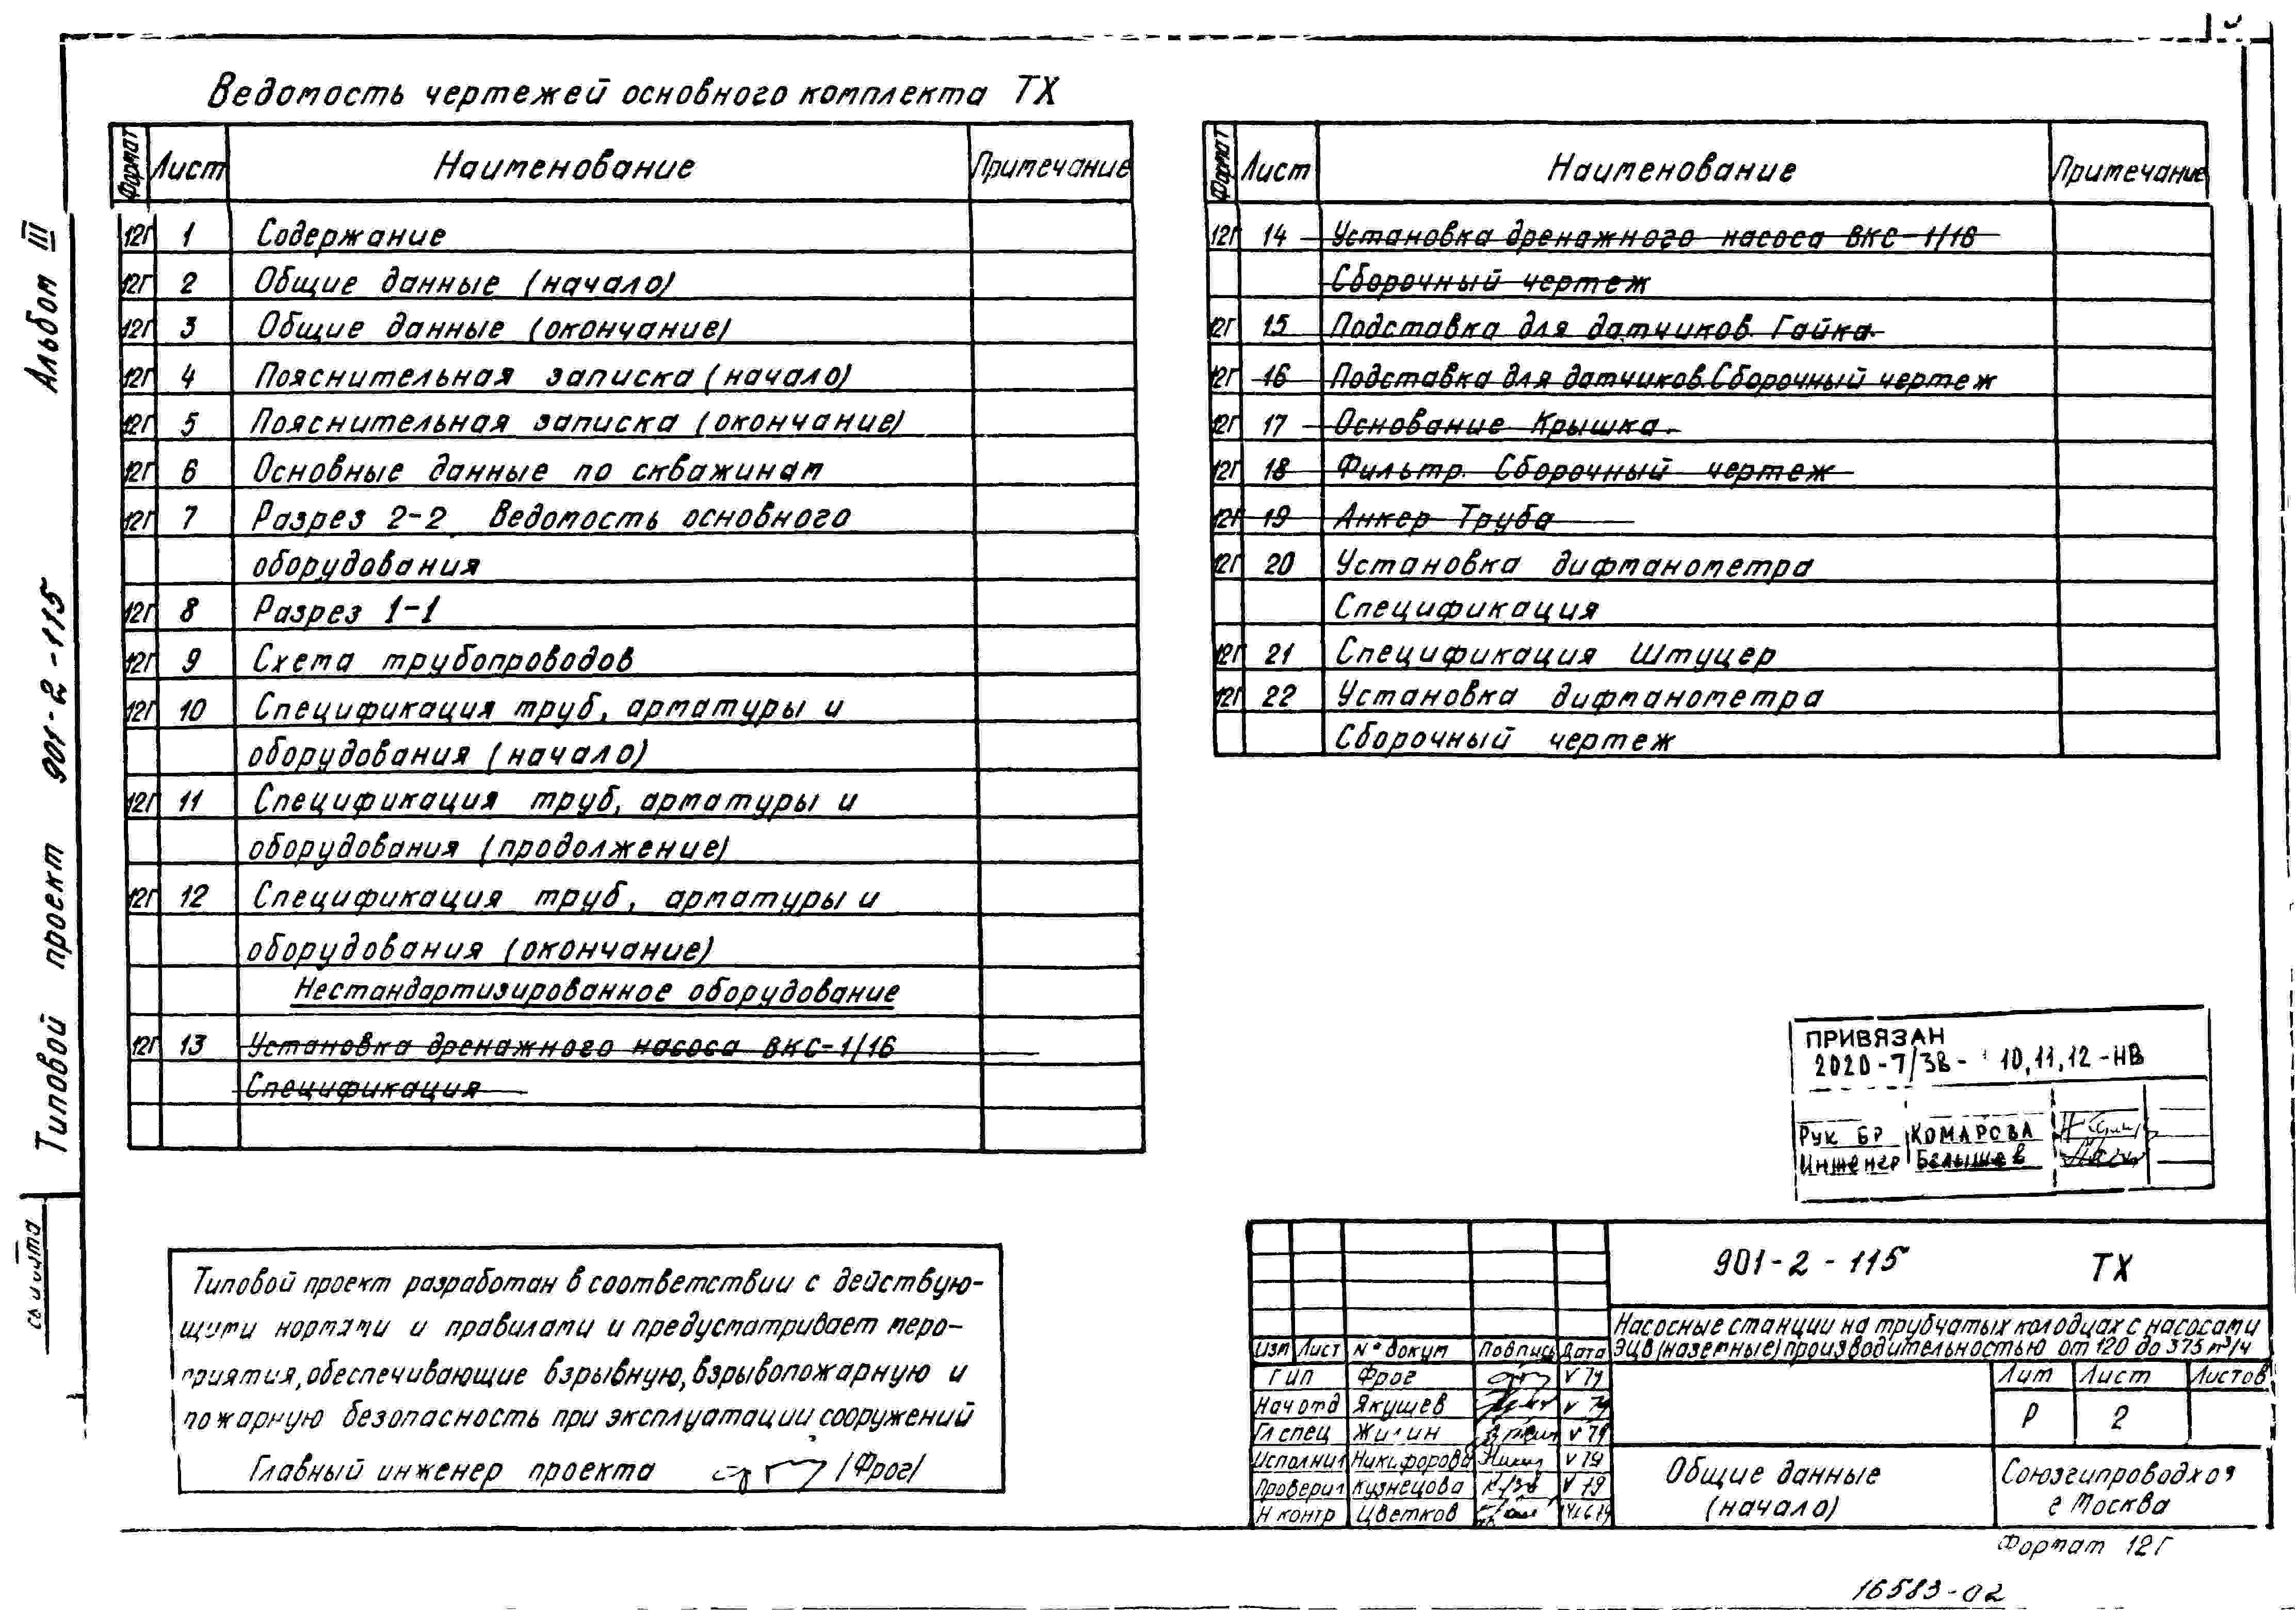 Ведомость чертежей основного комплекта ТХ
Формат Лист Наименование Примечание
12Г 1 Содержание
12Г 2 Общие данные (начало)
12Г 3 Общие данные (окончание)
12Г 4 Пояснительная записка (начало)
12Г 5 Пояснительная записка (окончание)
12Г 6 Основные данные по скважинам
12Г 7 Разрез 2-2 Ведомость основного
оборудования
12Г 8 Разрез 1-1
12Г 9 Схема трубопроводов
12Г 10 Спецификация труб, арматуры и
оборудования (начало)
12Г 11 Спецификация труб, арматуры и
оборудования (продолжение)
12Г 12 Спецификация труб, арматуры и
оборудования (окончание)
Нестандартизированное оборудование
12Г 13 Установка дренажного насоса ВКС-1/16
Спецификация
Формат Лист Наименование Примечание
12Г 14 Установка дренажного насоса ВКС-1/16
Сборочный чертеж
12Г 15 Подставка для датчиков. Гайка.
12Г 16 Подставка для датчиков. Сборочный чертеж
12Г 17 Основание Крышка.
12Г 18 Фильтр. Сборочный чертеж
12Г 19 Анкер Труба
12Г 20 Установка дифманометра
Спецификация
12Г 21 Спецификация Штуцер
12Г 22 Установка дифманометра
Сборочный чертеж
Альбом III
Типовой проект 901-2-115
Типовой проект разработан в соответствии с действую-
щими нормами и правилами и предусматривает меро-
приятия, обеспечивающие взрывную, взрывопожарную и
пожарную безопасность при эксплуатации сооружений
Главный инженер проекта /Фрог/
ПРИВЯЗАН
2020-7/38- 10,11,12-НВ
Рук бр КОМАРОВА
Инженер Белышев
901-2-115 ТХ
Насосные станции на трубчатых колодцах с насосами
ЭЦВ (наземные) производительностью от 120 до 375 м³/ч
Изм Лист № докум Подпись Дата
Гип Фрог V 79
Нач отд Якушев V 79
Гл спец Жилин V 79
Исполнил Никифорова V 79
Проверил Кузнецова V 79
Н контр Цветков
Лит Лист Листов
Р 2
Общие данные
(начало)
Союзгипроводхоз
г Москва
Формат 12Г
16583-02